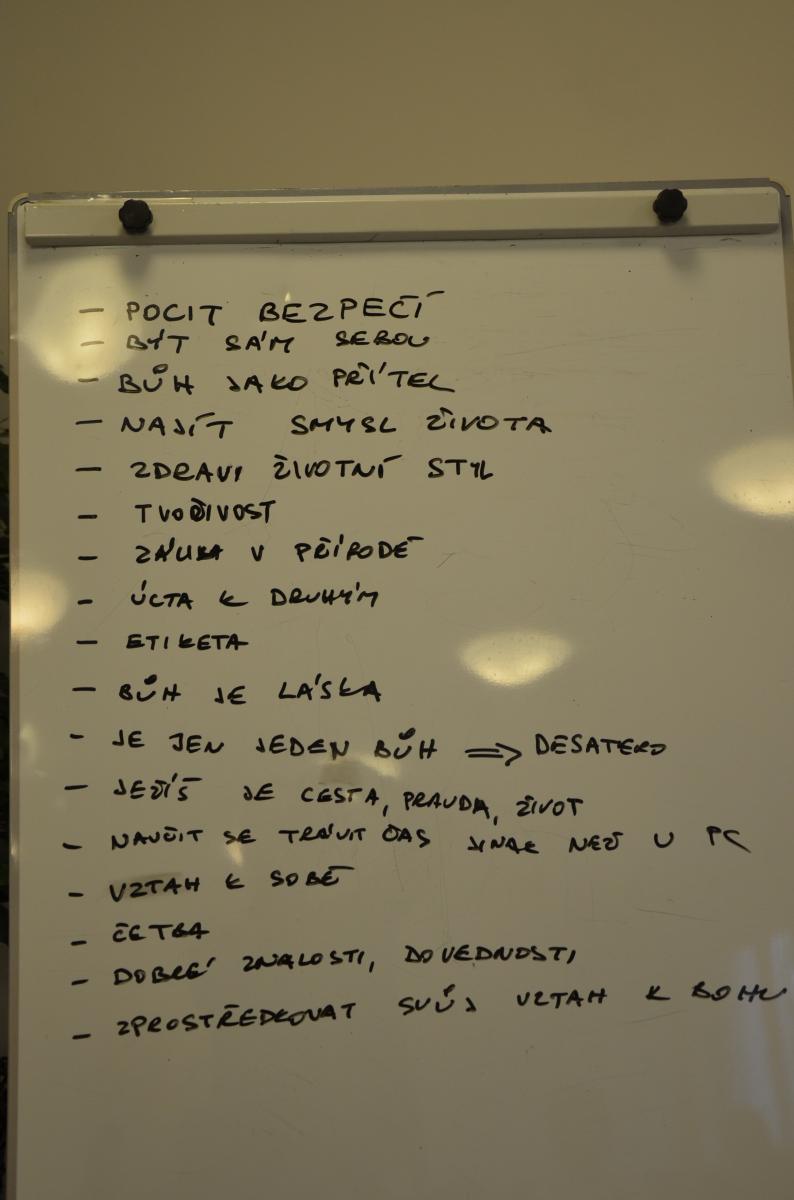 – POCIT BEZPEČÍ
– BÝT SÁM SEBOU
– BŮH JAKO PŘÍTEL
– NAJÍT SMYSL ŽIVOTA
– ZDRAVÍ ŽIVOTNÍ STYL
– TVOŘIVOST
– V PŘÍRODĚ
– ÚCTA K DRUHÝM
– ETIKETA
– BŮH JE LÁSKA
– JE JEN JEDEN BŮH => DESATERO
– JEŽÍŠ JE CESTA, PRAVDA, ŽIVOT
– NAUČIT SE TRÁVIT ČAS JINAK NEŽ U PC
– VZTAH K SOBĚ
– ČETBA
– DOBRÉ ZNALOSTI, DOVEDNOSTI
– ZPROSTŘEDKOVAT SVŮJ VZTAH K BOHU